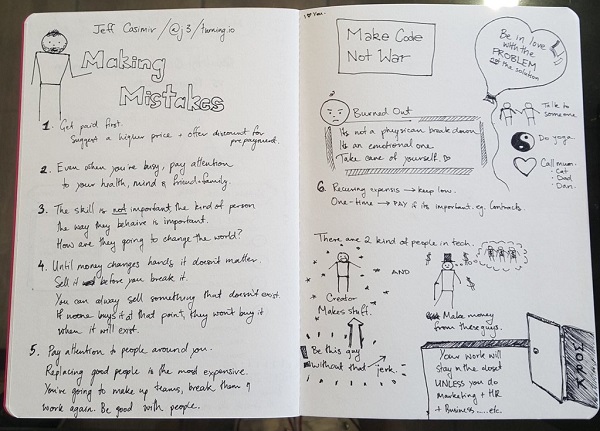 Jeff Casimir / @j3 / turning.io
Making
Mistakes
1. Get paid first.
Suggest a higher price + offer discount for
prepayment.
2. Even when you're busy, pay attention
to your health, mind & friend+family.
3. The skill is not important, the kind of person
the way they behaive is important.
How are they going to change the world?
4. Until money changes hands it doesn't matter.
Sell it before you break it.
You can alway sell something that doesn't exist.
If noone buys it at that point, they won't buy it
when it will exist.
5. Pay attention to people around you.
Replacing good people is the most expensive.
You're going to make up teams, break them n
work again. Be good with people.
Make Code
Not War
Be in love
with the
PROBLEM
not the solution
Burned Out
Its not a physican break down
Its an emotional one.
Take care of yourself.
Talk to
someone
Do yoga.
Call mum
· Cat
· Dad
· Dan.
6. Recurring expensis → keep low.
One-time → PAY if its important. eg. Contracts
There are 2 kind of people in tech.
AND
Creator
Makes stuff.
Make money
from these guys.
Be this guy
without that jerk.
Your work will
stay in the closet
UNLESS you do
Marketing + HR
+ Business.....etc.
WORK